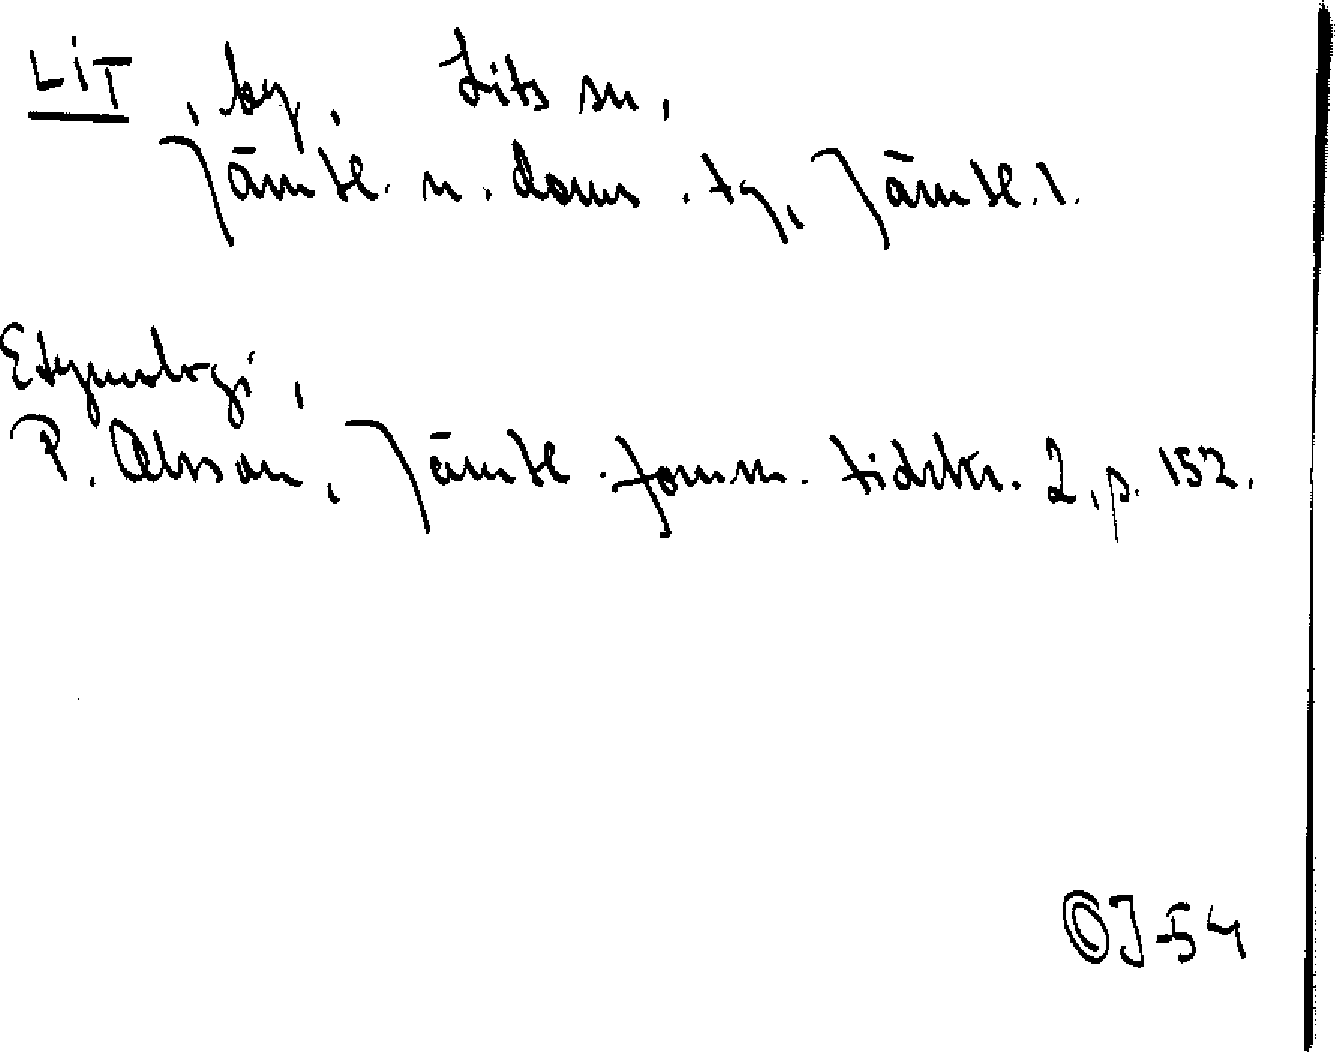 LIT, by, Lits sn,
Jämtl. n. doms. tg, Jämtl. l.
Etymologi,
P. Olsson, Jämtl. fornm. tidskr. 2, p. 152.
OJ-54